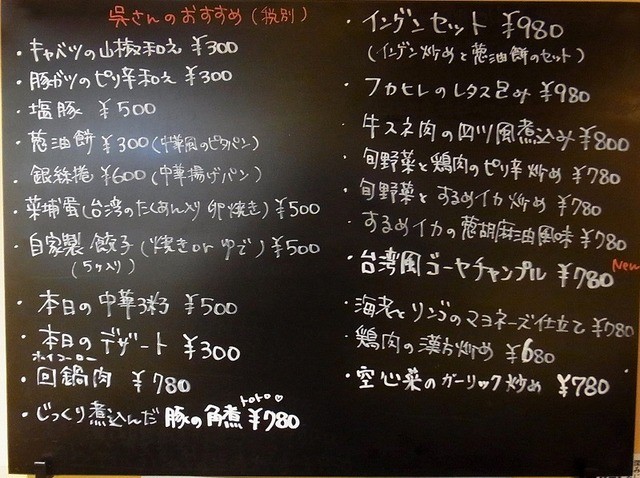 呉さんのおすすめ(税別)
・キャベツの山椒和え ¥300
・豚ガツのピリ辛和え ¥300
・塩豚 ¥500
・葱油餅 ¥300(中華風のピタパン)
・銀絲捲 ¥600(中華揚げパン)
・菜埔蛋(台湾のたくあん入り卵焼き) ¥500
・自家製 餃子(焼きorゆで) ¥500
(5ケ入り)
・本日の中華粥 ¥500
・本日のデザート ¥300
ホイコーロー
・回鍋肉 ¥780
トロトロ♡
・じっくり煮込んだ 豚の角煮 ¥780
・インゲンセット ¥980
(インゲン炒めと葱油餅のセット)
・フカヒレのレタス包み ¥980
・牛スネ肉の四ツ風煮込み ¥800
・旬野菜と鶏肉のピリ辛炒め ¥780
・旬野菜とするめイカ炒め ¥780
・するめイカの葱胡麻油風味 ¥780
New
・台湾風ゴーヤチャンプル ¥780
・海老とリンゴのマヨネーズ仕立て ¥780
・鶏肉の漢方炒め ¥680
・空心菜のガーリック炒め ¥780